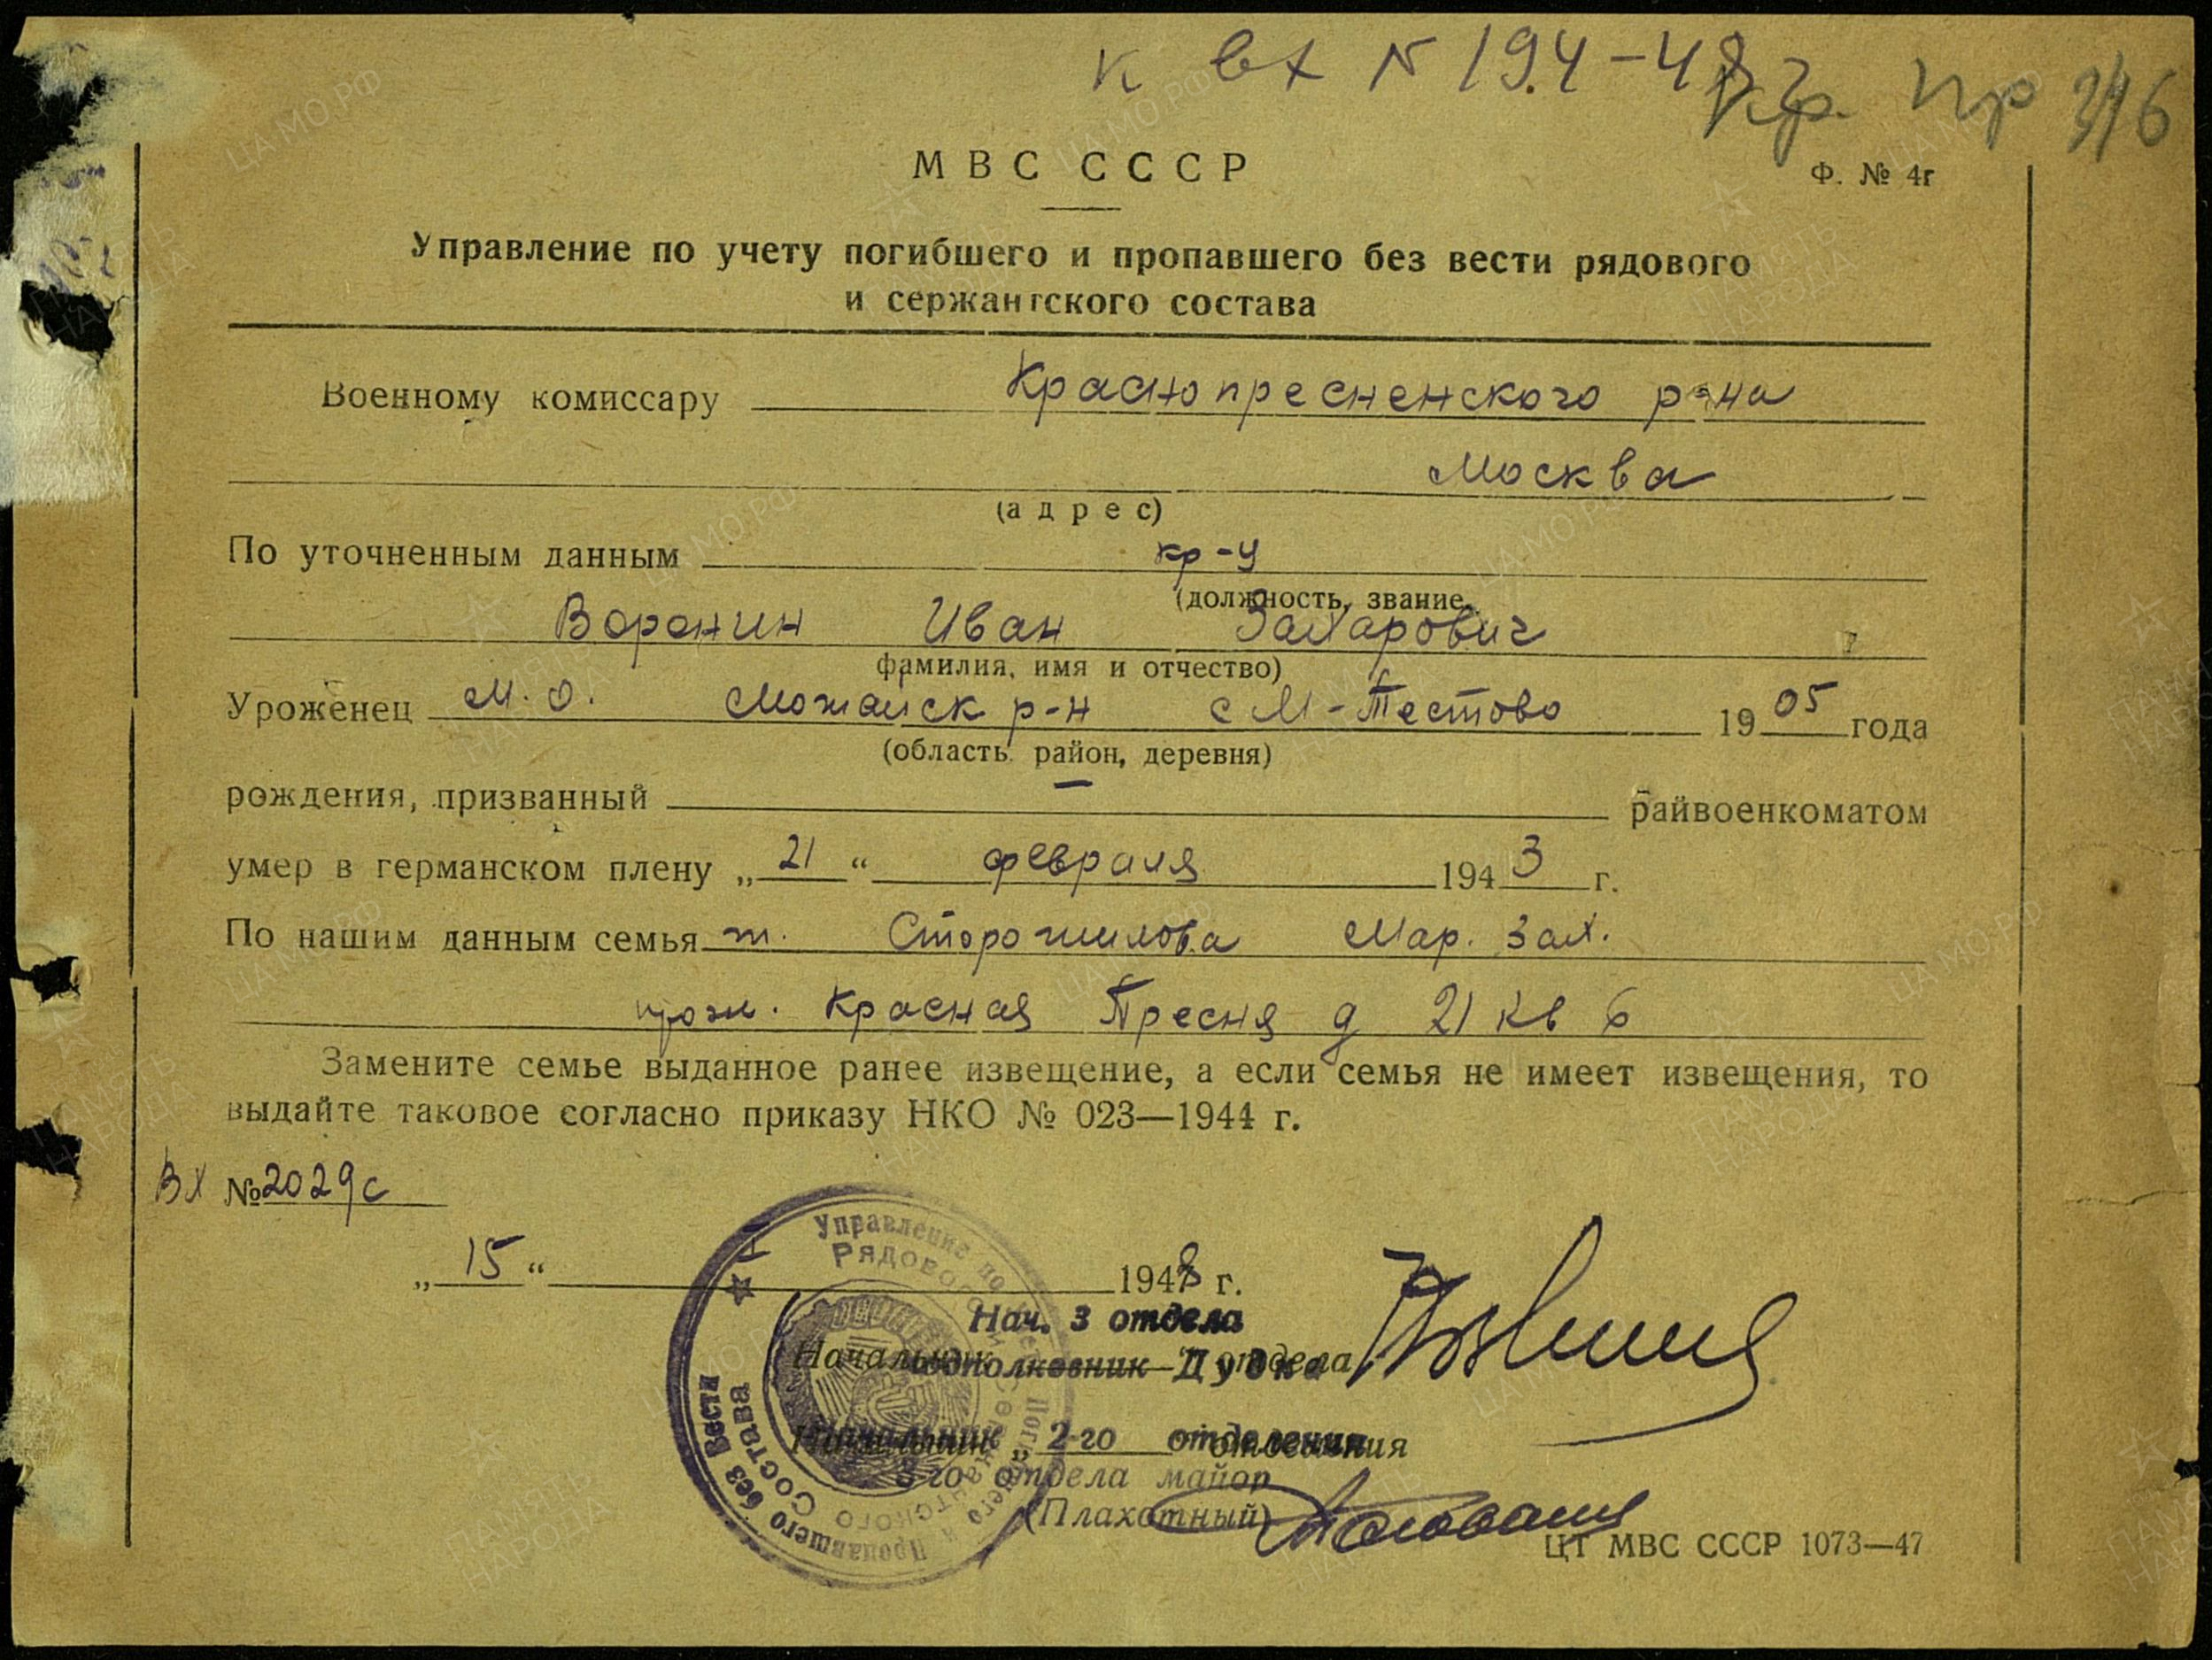 к вх № 194-48г
Кр. Пр 316
МВС СССР
Ф. № 4г
Управление по учету погибшего и пропавшего без вести рядового
и сержантского состава
Военному комиссару Краснопресненского р-на
Москва
(адрес)
По уточненным данным кр-ц
(должность, звание,
Воронин Иван Захарович
фамилия, имя и отчество)
Уроженец М.О. Можайск р-н с М-Тестово 1905 года
(область, район, деревня)
рождения, призванный — райвоенкоматом
умер в германском плену „21“ февраля 1943 г.
По нашим данным семья т. Сторожилова Мар. Зах.
прож. Красная Пресня д 21 кв 6
Замените семье выданное ранее извещение, а если семья не имеет извещения, то
выдайте таковое согласно приказу НКО № 023—1944 г.
Вх №2029с
„15“ 1948 г.
Нач. 3 отдела
Начальник отдела
подполковник Дудка
Начальник 2-го отделения
3-го отдела майор
(Плахотный)
ЦТ МВС СССР 1073—47
Управление по Погибшего и Пропавшего без Вести
Рядового и Сержантского Состава
ЦАМО.РФ
ПАМЯТЬ НАРОДА